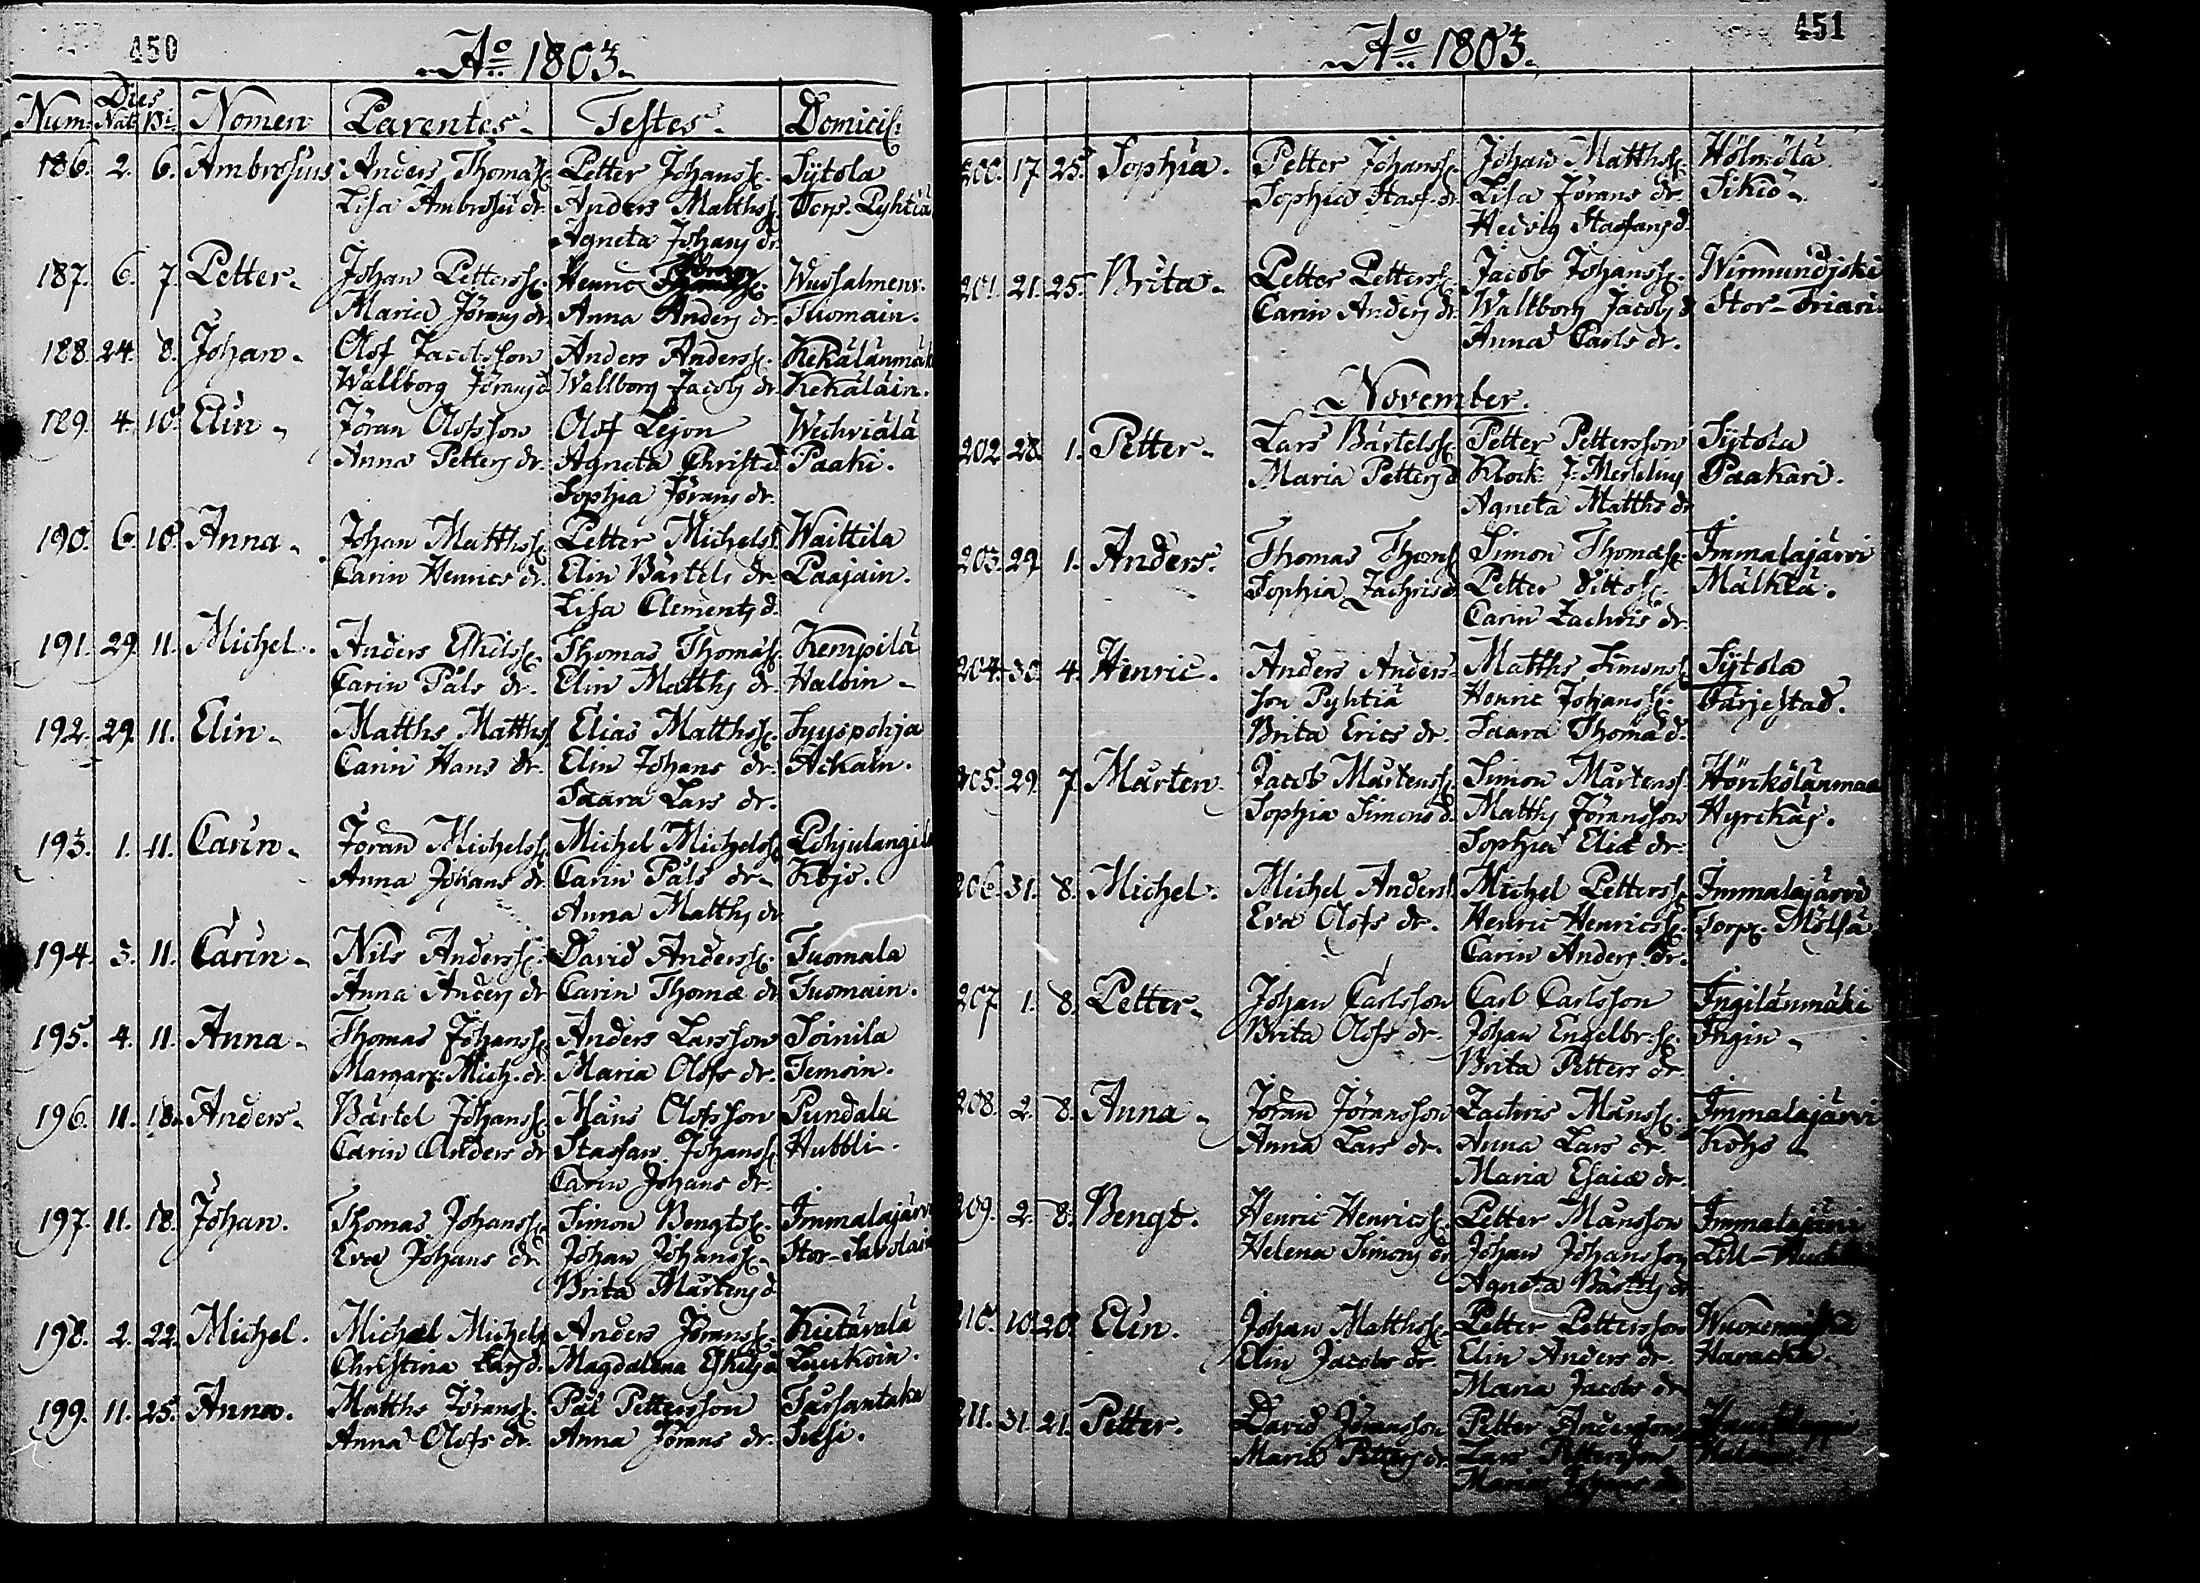 450
Ao 1803.
Num: Dies Nat: Bt: Nomen Parentes. Testes. Domicil:
186. 2. 6. Ambrosius Anders Thomæss. Petter Johanss. Sÿtola
Lisa Ambrosii dr. Anders Matthss. Torp. Pyhtiä
Agneta Johans dr.
187. 6. 7. Petter. Johan Petterss. Henric Wuosalmenr.
Maria Jörans dr. Anna Anders dr. Tuomain.
188. 24. 8. Johan. Olof Jacobsson Anders Anderss. Kekälänmäk
Wallborg Jörans d. Wallborg Jacobs dr. Kekäläin.
189. 4. 10. Elin. Jöran Olofsson Olof Lejon Wechviälä
Anna Petters dr. Agneta Christ. d. Paaki.
Sophia Jörans dr.
190. 6. 10. Anna. Johan Matthss. Petter Michelss. Waittila
Carin Henrics dr. Elin Bärtels dr. Paajain.
Lisa Clements d.
191. 29. 11. Michel. Anders Eskilss. Thomas Thomæss. Kempilä
Carin Påls dr. Elin Matths dr. Haloin.
192. 29. 11. Elin. Matths Matthss. Elias Matthss. Syyspohja
Carin Hans dr. Elin Johans dr. Äikäin.
Saara Lars dr.
193. 1. 11. Carin. Jöran Michelss. Michel Michelss. Pohjalangila
Anna Johans dr. Carin Påls dr. Kojo.
Anna Matths dr.
194. 3. 11. Carin. Nils Anderss. David Anderss. Tuomala
Anna Anders dr. Carin Thomæ dr. Tuomain.
195. 4. 11. Anna. Thomas Johanss. Anders Larsson Soinila
Margar: Mich. dr. Maria Olofs dr. Temoin.
196. 11. 18. Anders. Bärtel Johanss. Måns Olofsson Pundala
Carin Anders dr. Staffan Johanss. Hubbli.
Carin Johans dr.
197. 11. 18. Johan. Thomas Johanss. Simon Bengtss. Immalajärvi
Eva Johans dr. Johan Johanss. Stor-Savolain
Brita Mårtens d.
198. 2. 22. Michel. Michael Michelss. Anders Jöranss. Kietävälä
Christina Lars d. Magdalena Eskils d. Laukoin.
199. 11. 25. Anna. Matths Jöranss. Pål Pettersson
Anna Olofs dr. Anna Jörans dr. Susi.
451
Ao 1803.
200. 17. 25. Sophia. Petter Johanss. Johan Matthss. Hölmölä
Sophia Staf. dr. Lisa Jörans dr. Sikiö.
Hedvig Staffans d.
201. 21. 25. Brita. Petter Petterss. Jacob Johanss. Wirmundjoki
Carin Anders dr. Wallborg Jacobs d. Stor-Triari
Anna Carls dr.
November.
202. 28. 1. Petter. Lars Bärtelss. Petter Pettersson Sÿtola
Maria Petters d. Klock. J: Paakari.
Agneta Matths dr.
203. 29. 1. Anders. Thomas Thomss. Simon Thomæss. Immalajärvi
Sophia Zachris d. Petter dittoss. Mälkiä.
Carin Zachris dr.
204. 30. 4. Henric. Anders Anders- Matths Simonss. Sÿtola
son Pyhtiä Henric Johanss. Färjestad.
Brita Erics dr. Saara Thomæ d.
205. 29. 7. Mårten. Jacob Mårtenss. Simon Mårtenss. Hörkölänmaa
Sophia Simons d. Matths Jöransson Hyrckäs.
Sophia Eliæ dr.
206. 31. 8. Michel. Michel Anderss. Michel Petterss. Immalajärvi
Eva Olofs dr. Henric Henricss. Torp. Mölsä.
Carin Anders dr.
207. 1. 8. Petter. Johan Carlsson Carl Carlsson Ingilänmäki
Brita Olofs dr. Johan Engelbr:ss. Ingin.
Brita Petters dr.
208. 2. 8. Anna. Jöran Jöransson Zachris Månss. Immalajärvi
Anna Lars dr. Anna Lars dr. Koho
Maria Esaiæ dr.
209. 2. 8. Bengt. Henric Henricss. Petter Månsson Immalajärvi
Helena Simons dr. Johan Johansson Lill-
Agneta Bärtels dr.
210. 10. 20. Elin. Johan Matthss. Petter Pettersson Wuoxenniska
Elin Jacobs dr. Elin Anders dr. Haracka.
Maria Jacobs dr.
211. 31. 21. Petter. David Jöransson Petter Andersson
Maria Petters dr. Lars Pettersson
Maria Johans dr.